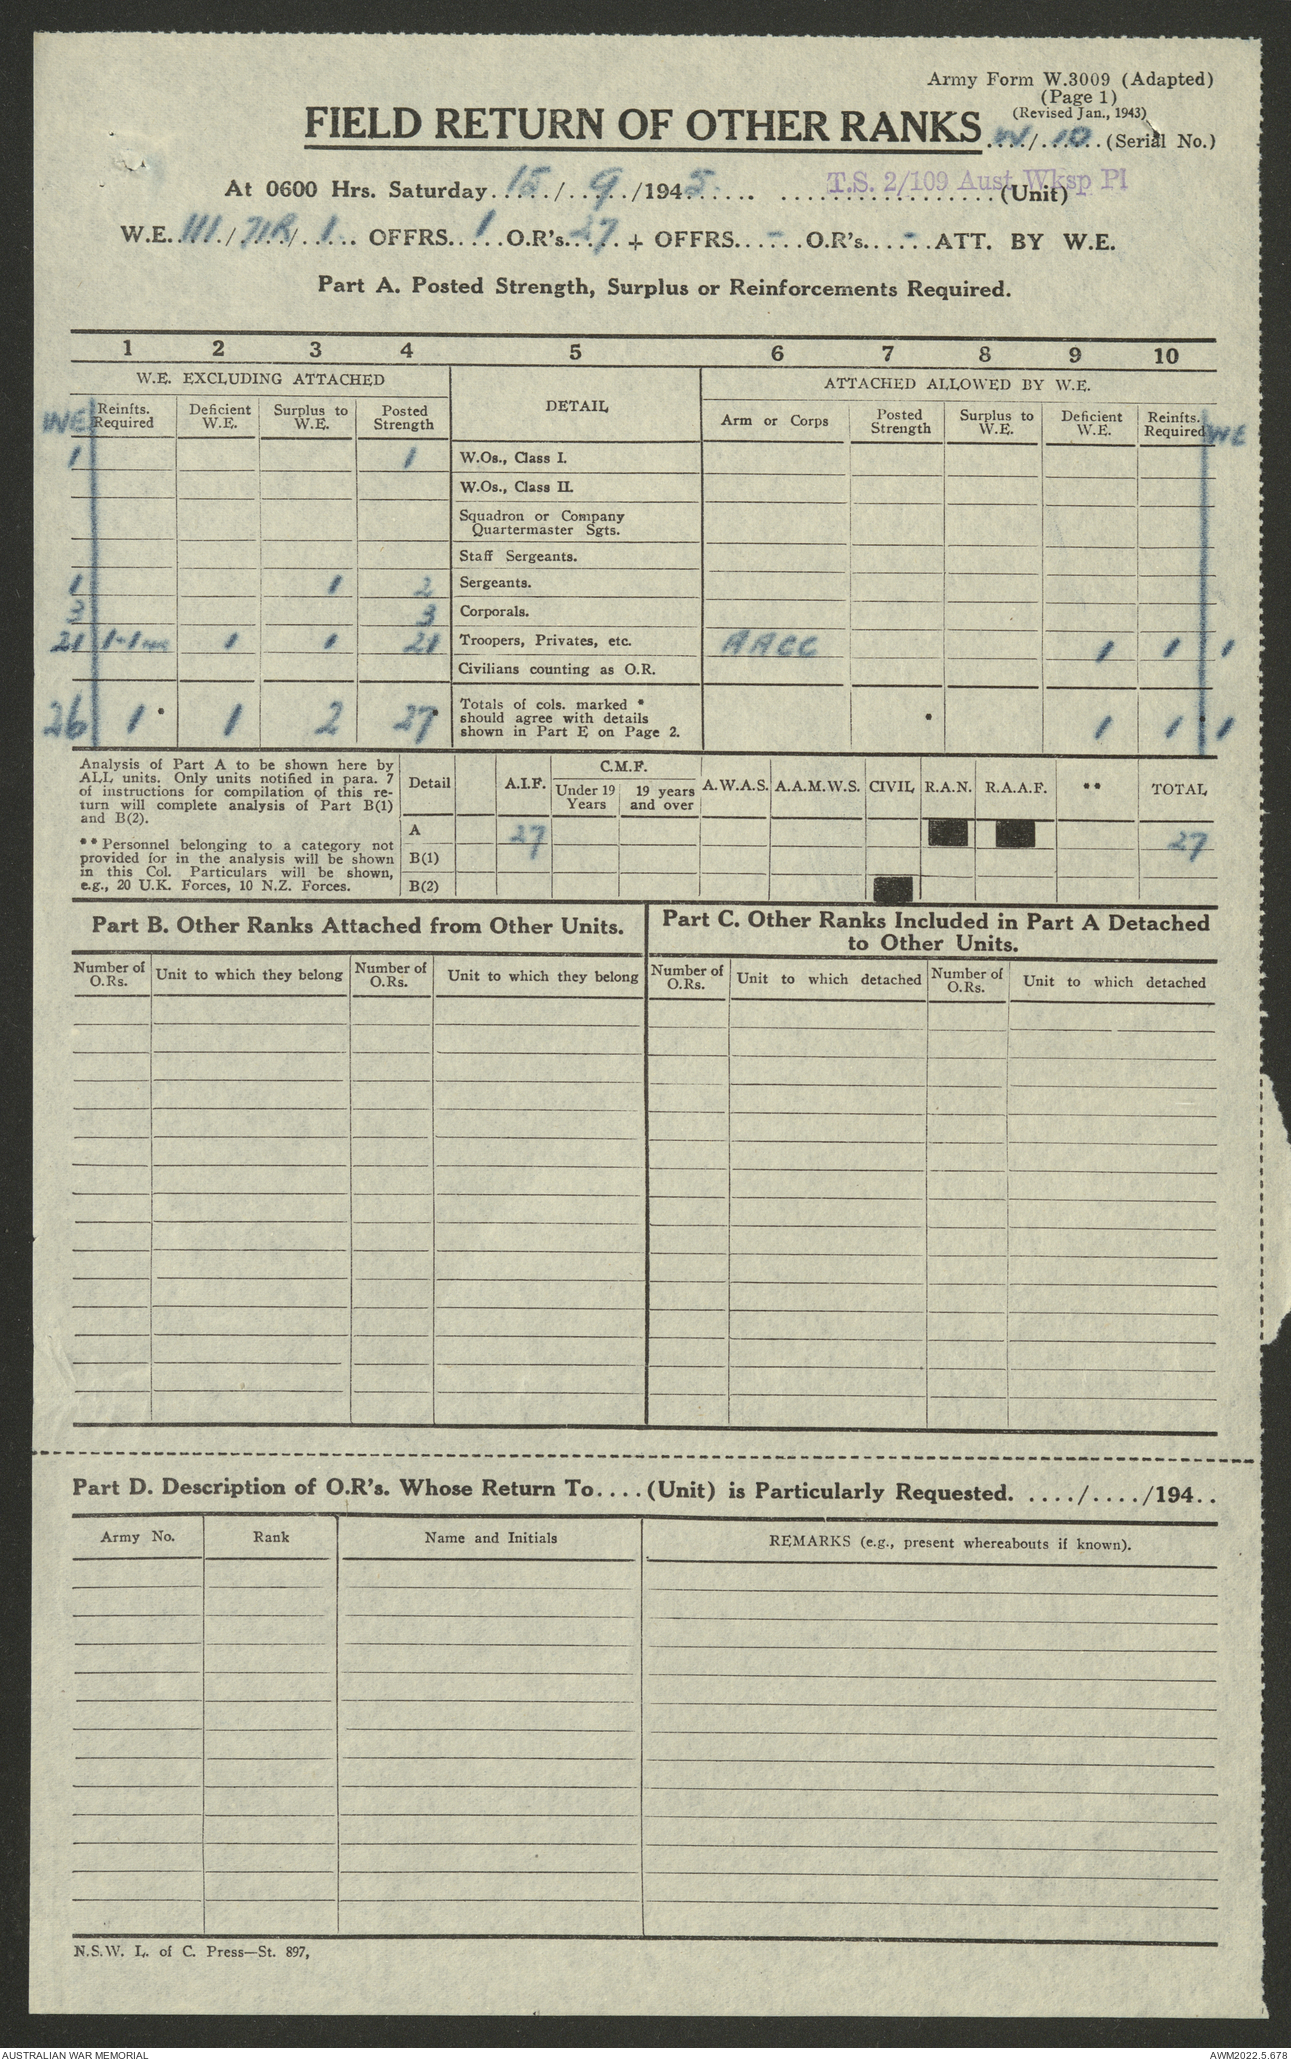 Army Form W.3009 (Adapted)
(Page 1)
(Revised Jan., 1943)
FIELD RETURN OF OTHER RANKS W/10 (Serial No.)
At 0600 Hrs. Saturday 15/9/1945 T.S. 2/109 Aust Wksp Pl (Unit)
W.E. III/71R/1 OFFRS. 1 O.R's. 27 + OFFRS. - O.R's. - ATT. BY W.E.
Part A. Posted Strength, Surplus or Reinforcements Required.
1 2 3 4 5 6 7 8 9 10
W.E. EXCLUDING ATTACHED DETAIL ATTACHED ALLOWED BY W.E.
WE Reinfts. Required Deficient W.E. Surplus to W.E. Posted Strength Arm or Corps Posted Strength Surplus to W.E. Deficient W.E. Reinfts. Required WE
1 1 W.Os., Class I.
W.Os., Class II.
Squadron or Company
Quartermaster Sgts.
Staff Sergeants.
1 1 2 Sergeants.
3 3 Corporals.
21 1-1 1 1 21 Troopers, Privates, etc. AACC 1 1 1
Civilians counting as O.R.
26 1 * 1 2 27 * Totals of cols. marked *
should agree with details
shown in Part E on Page 2. * 1 1 * 1
Analysis of Part A to be shown here by
ALL units. Only units notified in para. 7
of instructions for compilation of this re-
turn will complete analysis of Part B(1)
and B(2).
** Personnel belonging to a category not
provided for in the analysis will be shown
in this Col. Particulars will be shown,
e.g., 20 U.K. Forces, 10 N.Z. Forces.
Detail A.I.F. C.M.F. Under 19 Years 19 years and over A.W.A.S. A.A.M.W.S. CIVIL R.A.N. R.A.A.F. ** TOTAL
A 27 27
B(1)
B(2)
Part B. Other Ranks Attached from Other Units.
Number of O.Rs. Unit to which they belong Number of O.Rs. Unit to which they belong
Part C. Other Ranks Included in Part A Detached
to Other Units.
Number of O.Rs. Unit to which detached Number of O.Rs. Unit to which detached
Part D. Description of O.R's. Whose Return To.... (Unit) is Particularly Requested. ..../..../194..
Army No. Rank Name and Initials REMARKS (e.g., present whereabouts if known).
N.S.W. L. of C. Press—St. 897,
AUSTRALIAN WAR MEMORIAL AWM2022.5.678